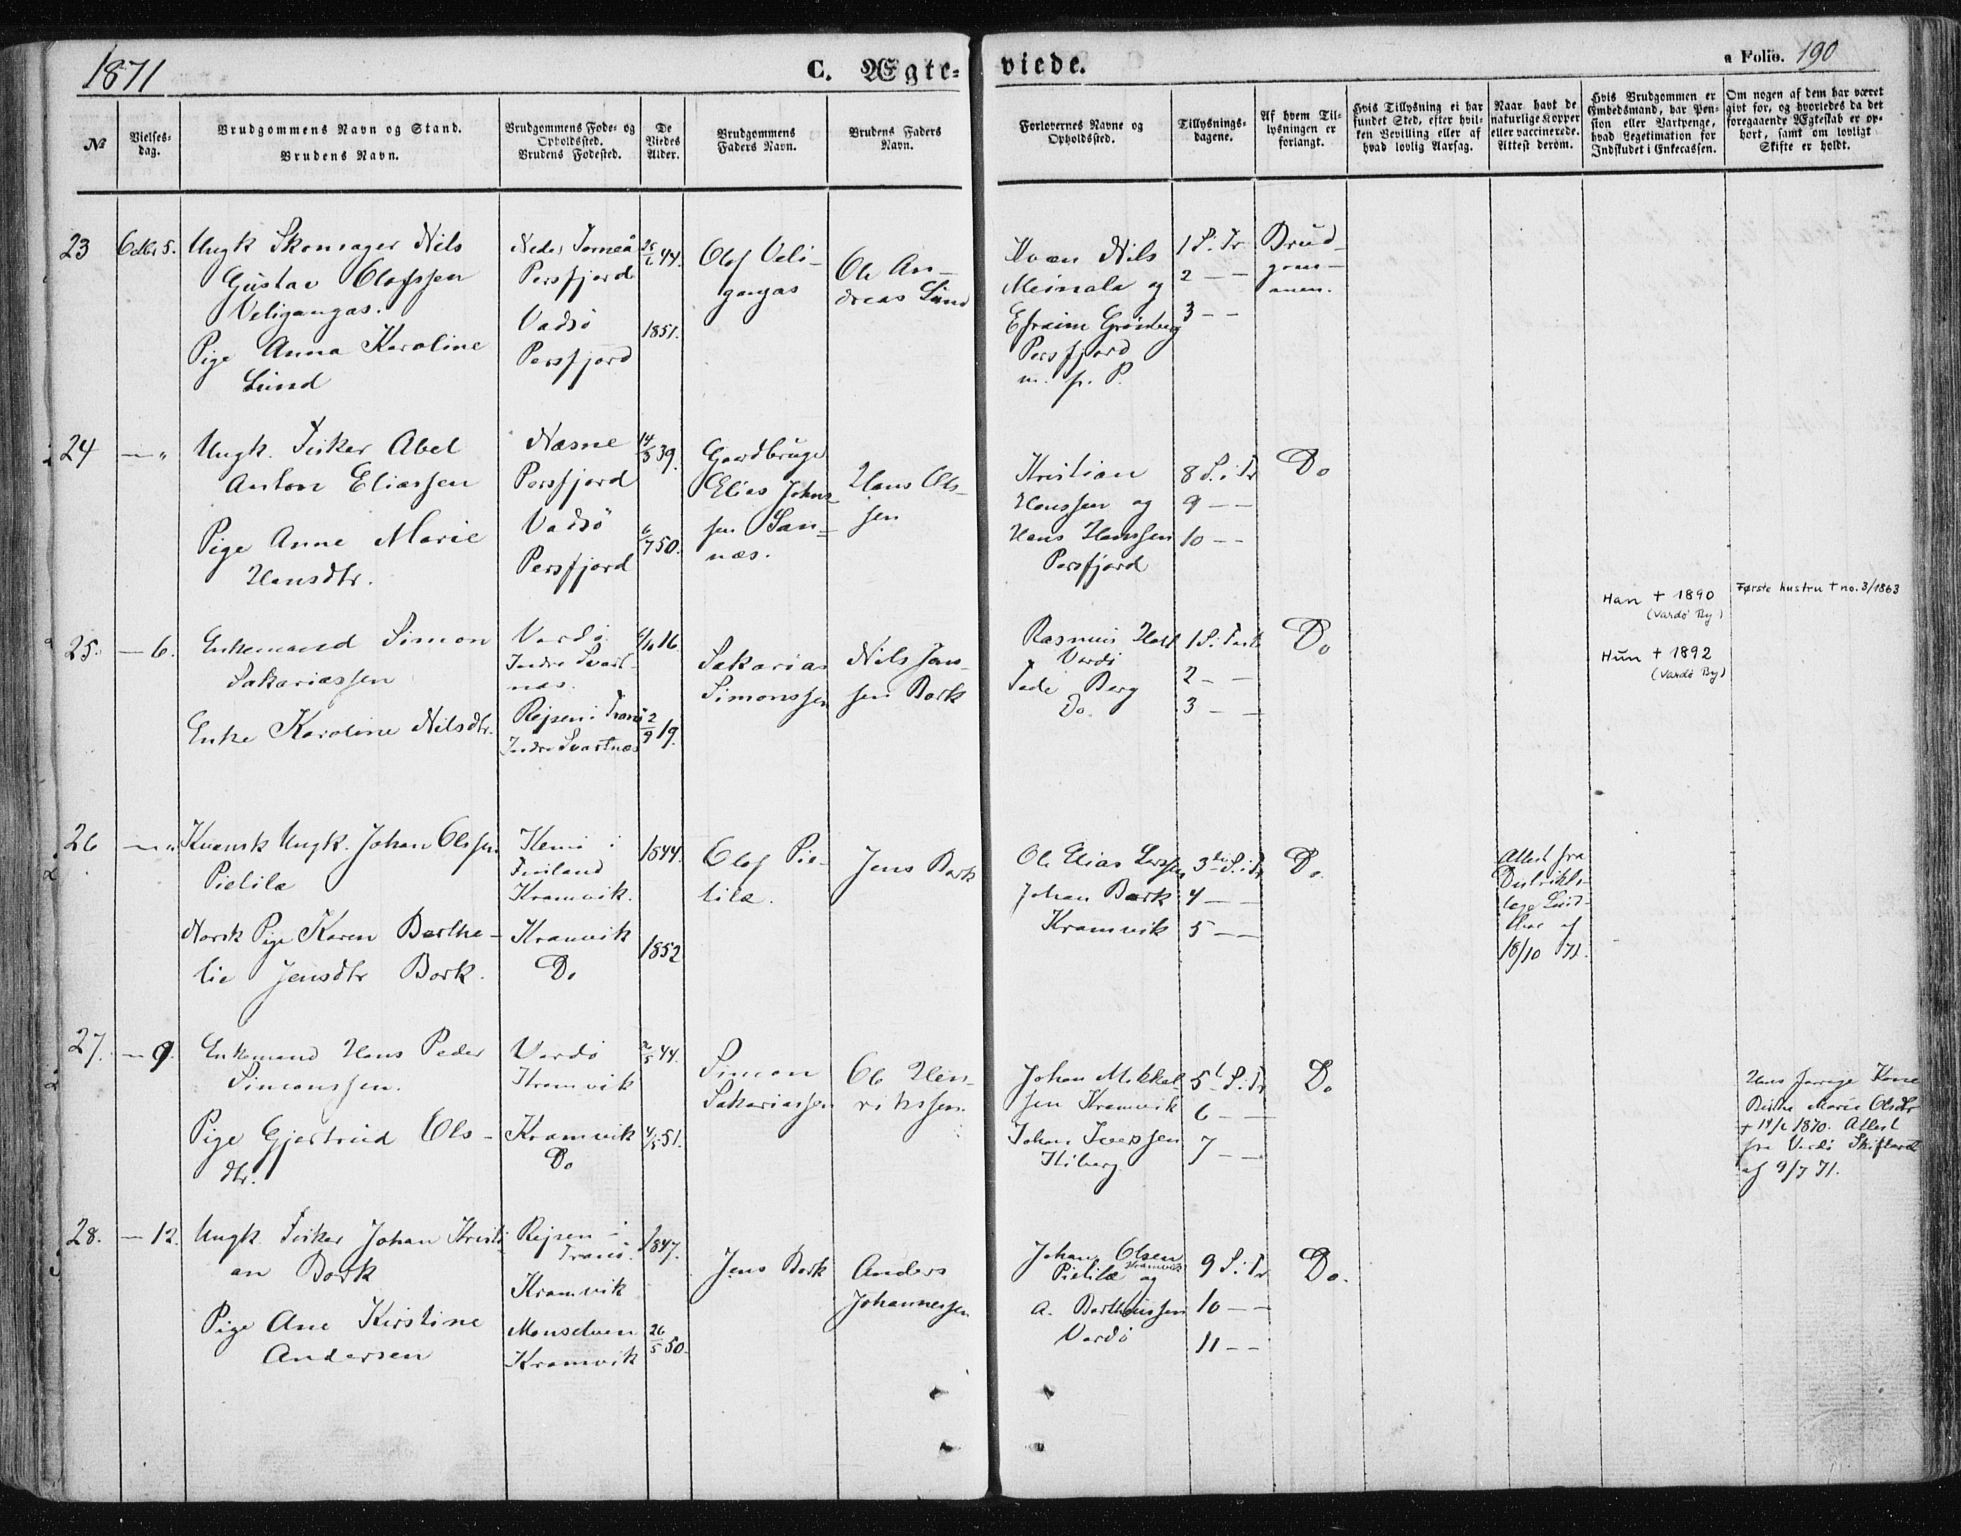 1871
C. Ægte-
viede.
a Folio. 190
No
Vielses-
dag.
Brudgommens Navn og Stand.
Brudens Navn.
Brudgommens Føde- og
Opholdssted.
Brudens Fødested.
De
Viedes
Alder.
Brudgommens
Faders Navn.
Brudens Faders
Navn.
Forlovernes Navne og
Opholdssted.
Tillysnings-
dagene.
Af hvem Til-
lysningen er
forlangt.
Hvis Tillysning ei har
fundet Sted, efter hvil-
ken Bevilling eller af
hvad lovlig Aarsag.
Naar havt de
naturlige Kopper
eller vaccinerede.
Attest derom.
Hvis Brudgommen er
Embedsmand, har Pen-
sion eller Vartpenge,
hvad Legitimation for
Indskudet i Enkecassen.
Om nogen af dem har været
givt for, og hvorledes da det
foregaaende Ægteskab er op-
hørt, samt om lovligt
Skifte er holdt.
23
Octbr 5.
Ungk Skomager Nils
Gustav Olafssen
Veligangas.
Pige Anna Karoline
Lund
Neder Torneå
Persfjord
Vadsö
Persfjord
44.
1851.
Olof Veli-
gangas
Ole An-
dreas Lund
Kvæn Nils
Meinala og
Efraim Grönberg
Persfjord
m. p. P.
1 S. Tr
2 - -
3 - -
Brud-
gom-
men.
24
- "
Ungk. Fisker Abel
Anton Eliassen
Pige Anne Marie
Hansdtr.
Næsne
Persfjord
Vadsö
Persfjord
14/3 39.
6/7 50.
Gaardbruger
Elias Johns-
sen San-
næs.
Hans Ols-
sen
Kristian
Hanssen og
Hans Hanssen
Persfjord
8 S. i Tr
9 - -
10 - -
Do
25.
- 6.
Enkemand Simon
Sakariassen
Enke Karoline Nilsdtr.
Vardö
Indre Svart-
næs.
Rejsen i Tranö
Indre Svartnæs
16
2/9 19.
Sakarias
Simonssen
Nils Jens-
sen Bork
Rasmus Holt
Vardö
Tade Berg
Do.
1 S. i Fast
2 - -
3 - -
Do
Han + 1890
(Vardø By)
Hun + 1892
(Vardø By)
Første hustru + no. 3/1863
26
- "
Kvænsk Ungk. Johan Olssen
Pietilæ
Norsk Pige Karen Berthe-
lie Jensdtr Bork.
Kemi i
Finland
Kramvik.
Kramvik
Do
1844.
1852
Olof Pie-
tilæ.
Jens Bork
Ole Elias Larssen
Johan Bork
Kramvik
3die S. i Tr
4 - -
5 - -
Do
Attest fra
Distrikts-
læge
af
18/10 71.
27.
- 9.
Enkemand Hans Peder
Simonssen.
Pige Gjertrud Ols-
dtr.
Vardö
Kramvik
Kramvik
Do
2/5 44.
51.
Simon
Sakariassen
Ole Hen-
rikssen.
Johan Mikkel-
sen Kramvik
Johan Iverssen
Kiberg
5t S. i Tr
6 - -
7 - -
Do
Hans forrige Kone
Birthe Marie Olsdtr
+ 1870. Attest
fra Vardö Skifteret
af 9/7 71.
28.
- 12.
Ungk. Fisker Johan Kristi-
an Bork
Pige Ane Kirstine
Andersen
Rejsen i
Tranö.
Kramvik
Monselven
Kramvik
1847.
26/5 50.
Jens Bork
Anders
Johannessen
Johan Olsen
Kramvik
Pietilæ og
A. Barthonssen
Vardö
9 S. i Tr
10 - -
11 - -
Do.